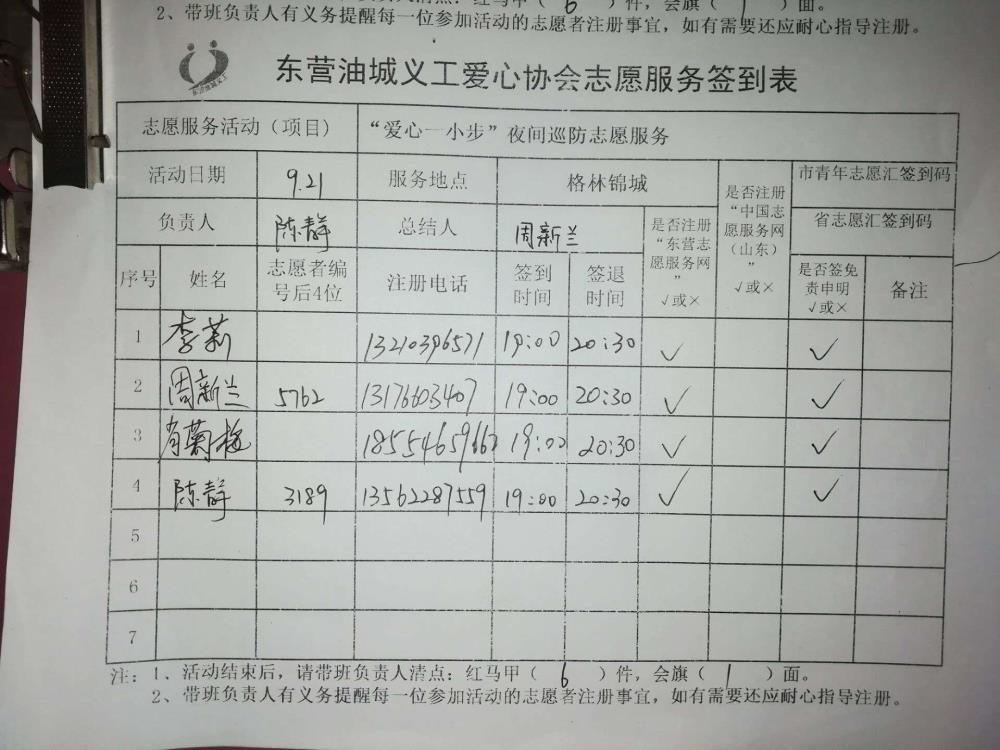 2、带班负责人有义务提醒每一位参加活动的志愿者注册事宜，如有需要还应耐心指导注册。
东营油城义工
东营油城义工爱心协会志愿服务签到表
志愿服务活动（项目） “爱心一小步”夜间巡防志愿服务
活动日期 9.21 服务地点 格林锦城 是否注册“中国志愿服务网（山东）”√或× 市青年志愿汇签到码
负责人 陈静 总结人 周新兰 是否注册“东营志愿服务网”√或× 省志愿汇签到码
序号 姓名 志愿者编号后4位 注册电话 签到时间 签退时间 是否签免责申明√或× 备注
1 李莉 13210396571 19:00 20:30 ✓ ✓
2 周新兰 5762 13176603407 19:00 20:30 ✓ ✓
3 肖菊梅 19:00 20:30 ✓ ✓
4 陈静 3189 13562287559 19:00 20:30 ✓ ✓
5
6
7
注：1、活动结束后，请带班负责人清点：红马甲（ 6 ）件，会旗（ 1 ）面。
2、带班负责人有义务提醒每一位参加活动的志愿者注册事宜，如有需要还应耐心指导注册。